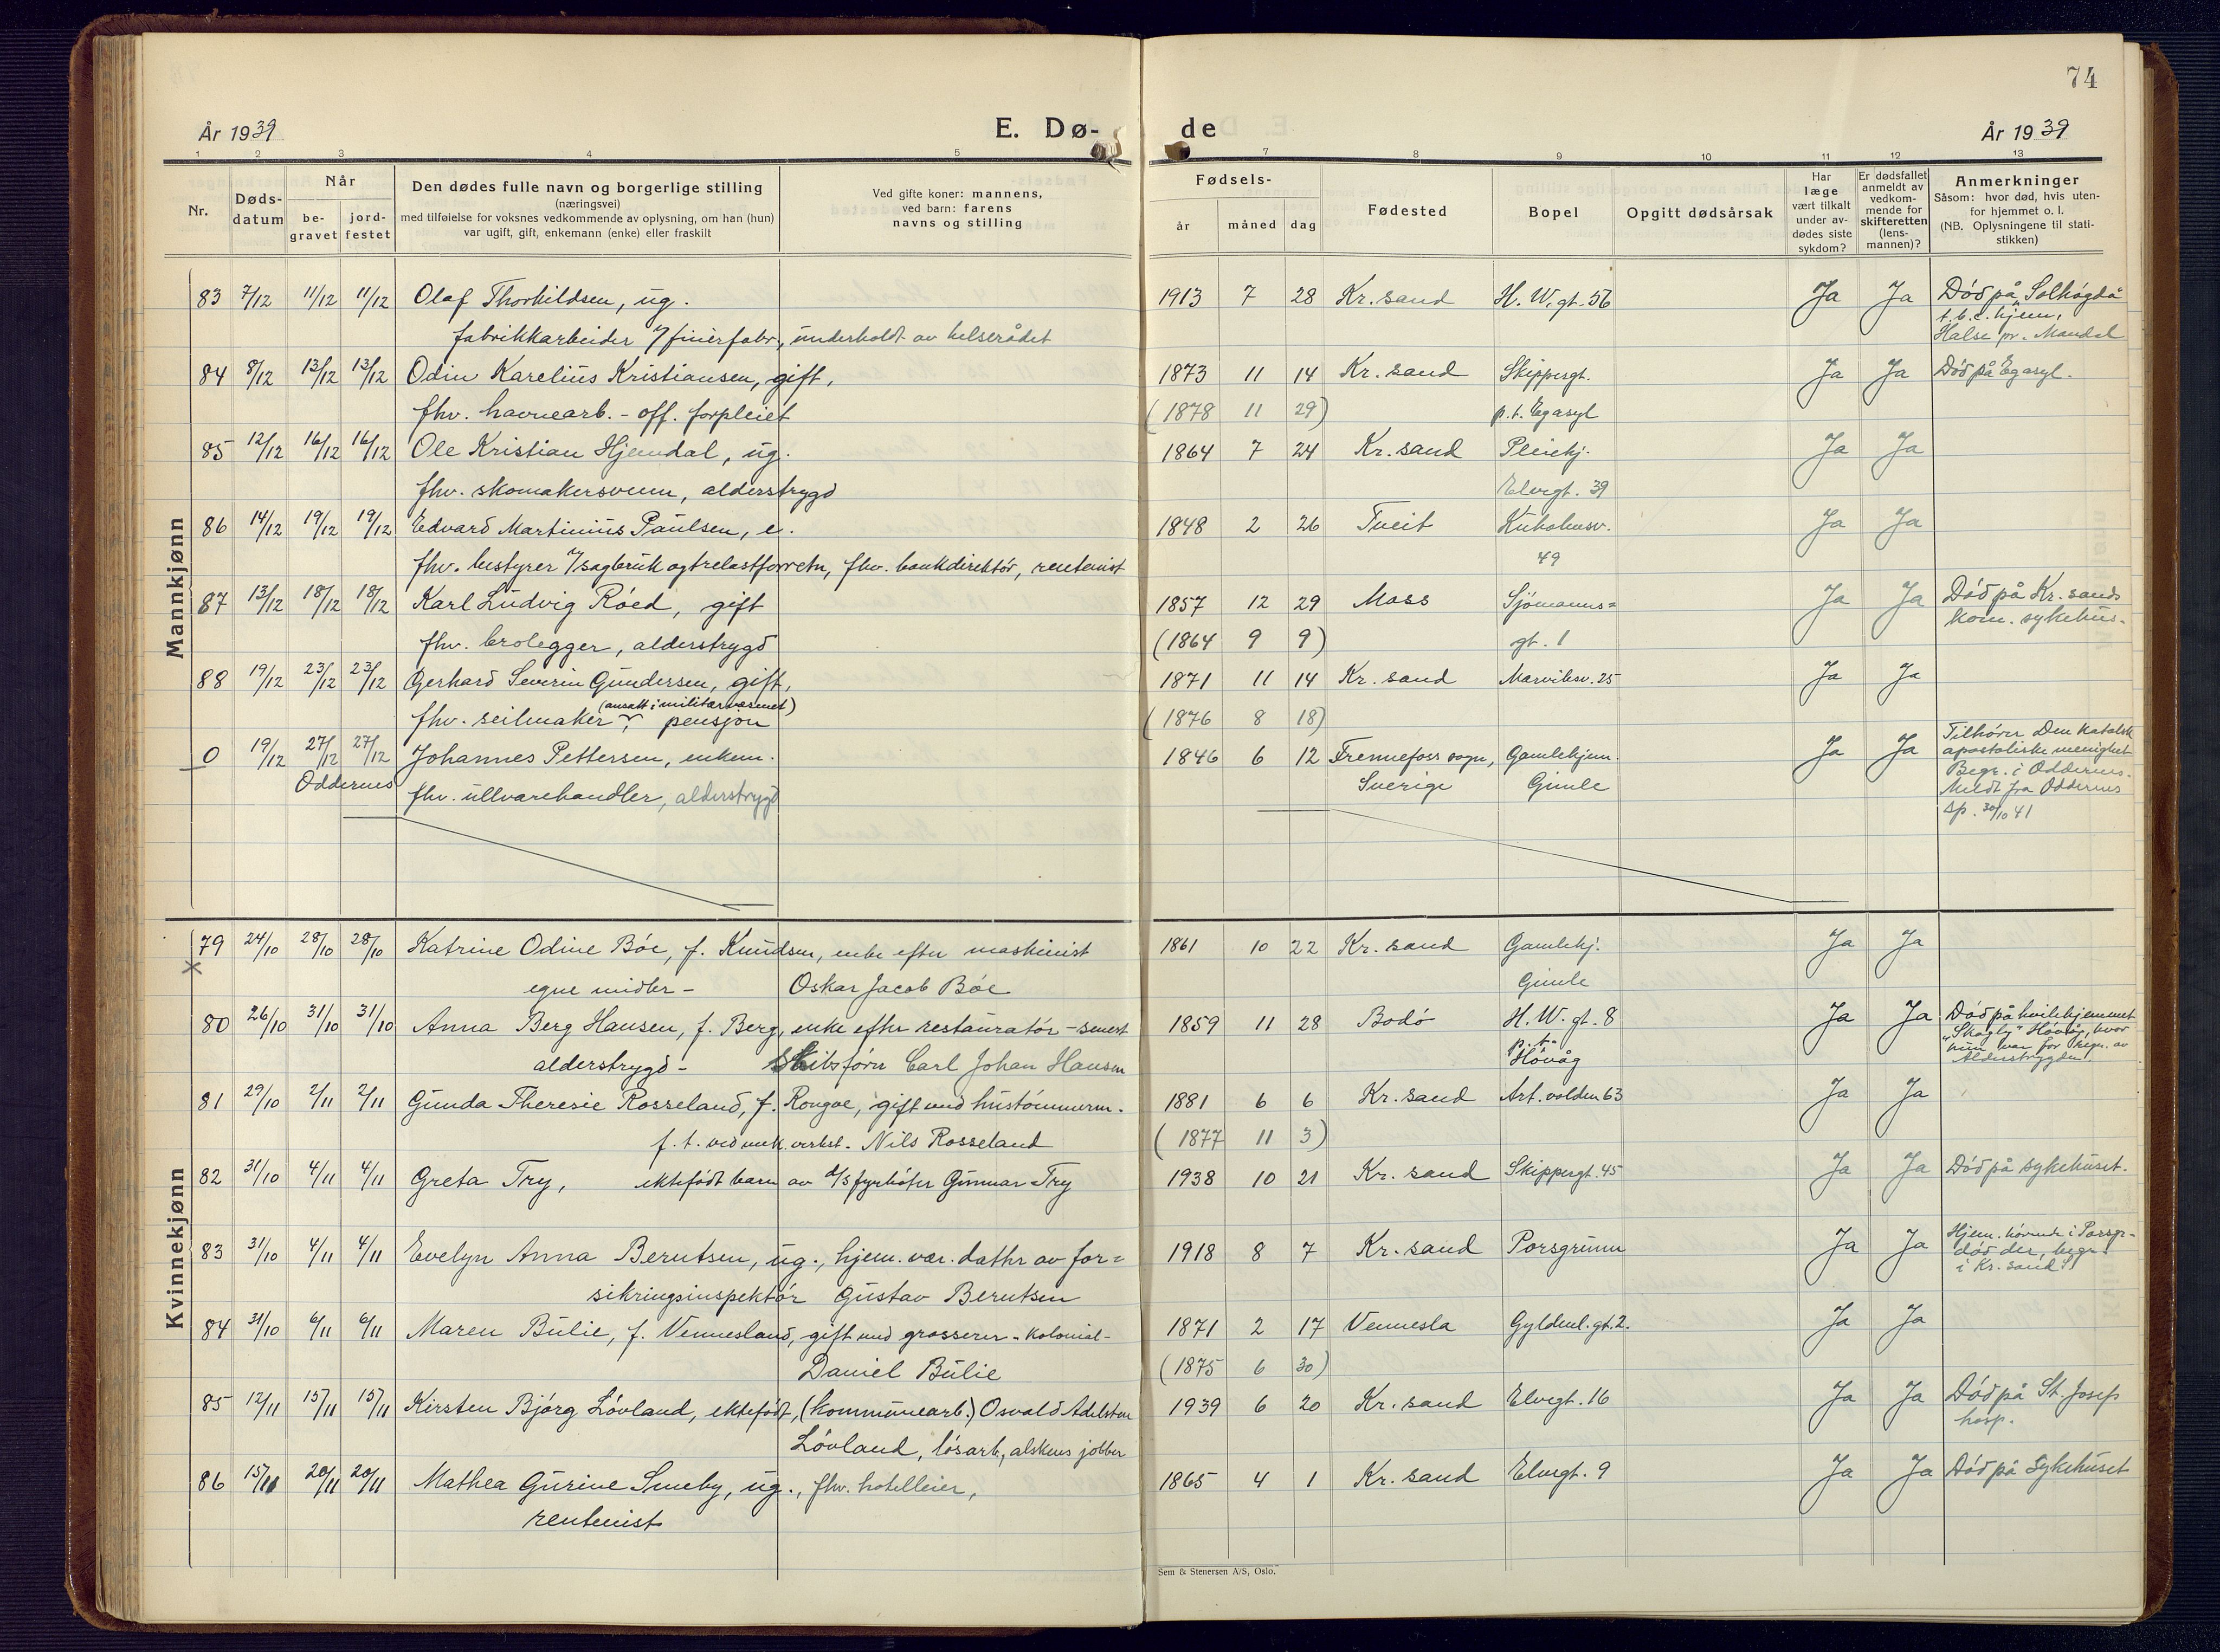 74
År 1939 E. Dø- de År 1939
1 2 3 4 5 7 8 9 10 11 12 13
Nr.
Døds-
datum
Når
be-
gravet
jord-
festet
Den dødes fulle navn og borgerlige stilling
(næringsvei)
med tilføielse for voksnes vedkommende av oplysning, om han (hun)
var ugift, gift, enkemann (enke) eller fraskilt
Ved gifte koner: mannens,
ved barn: farens
navns og stilling
Fødsels-
år måned dag
Fødested
Bopel
Opgitt dødsårsak
Har
læge
vært tilkalt
under av-
dødes siste
sykdom?
Er dødsfallet
anmeldt av
vedkom-
mende for
skifteretten
(lens-
mannen)?
Anmerkninger
Såsom: hvor død, hvis uten-
for hjemmet o. l.
(NB. Oplysningene til stati-
stikken)
Mannkjønn
83 7/12 11/12 11/12 Olaf Thorkildsen, ug. 1913 7 28 Kr. sand H. W. gt. 56 Ja Ja Død på "Solhøgda
fabrikkarbeider v/ finérfabr., underholdt av helserådet t.b.c. hjem,
Halse pr. Mandal
84 8/12 13/12 13/12 Odin Karelius Kristiansen, gift, 1873 11 14 Kr. sand Skippergt. Ja Ja Død på Egasyl.
fhv. havnearb. - off. forpleiet (1878 11 29) p.t. Egasyl
85 12/12 16/12 16/12 Ole Kristian Hjemdal, ug. 1864 7 24 Kr. sand Pleiehj. Ja Ja
fhv. skomakersvenn, alderstrygd Elvegt. 39
86 14/12 19/12 19/12 Edvard Martinius Paulsen, e. 1848 2 26 Tveit Kuholmsv. Ja Ja
fhv. bestyrer v/ sagbruk og trelastforretn, fhv. bankdirektør, rentenist 49
87 13/12 18/12 18/12 Karl Ludvig Røed, gift 1857 12 29 Moss Sjømanns= Ja Ja Død på Kr. sands
fhv. brolegger, alderstrygd (1864 9 9) gt. 1 kom. sykehus.
88 19/12 23/12 23/12 Gerhard Severin Gundersen, gift, 1871 11 14 Kr. sand Marviksv. 25 Ja Ja
(ansatt i militærvæsenet)
fhv. seilmaker, pensjon (1876 8 18)
0 19/12 27/12 27/12 Johannes Pettersen, enkem. 1846 6 12 Frennefoss sogn, Gamlehjem. Ja Ja Tilhører Den katolsk
Oddernes fhv. ullvarehandler, alderstrygd Sverige Gimle apostoliske menighet
Begr. i Oddernes.
Meldt fra Oddernes
sp. 30/10 41
Kvinnekjønn
79 24/10 28/10 28/10 Katrine Odine Bøe, f. Knudsen, enke efter maskinist 1861 10 22 Kr. sand Gamlehj. Ja Ja
× egne midler - Oskar Jacob Bøe Gimle
80 26/10 31/10 31/10 Anna Berg Hansen, f. Berg, enke efter restauratør - senest 1859 11 28 Bodø H. W. gt. 8 Ja Ja Død på hvilehjemmet
alderstrygd - skibsfører Carl Johan Hansen p.t. Høvåg "Skogly" Høvåg, hvor
hun var for regn. av
Alderstrygden
81 29/10 2/11 2/11 Gunda Theresie Rosseland, f. Rongve, gift med hustømmerm. 1881 6 6 Kr. sand Art. volden 63 Ja Ja
f. t. ved mek. verkst. Nils Rosseland (1877 11 3)
82 31/10 4/11 4/11 Greta Try, ektefødt barn av d/s fyrbøter Gunnar Try 1938 10 21 Kr. sand Skippergt. 45 Ja Ja Død på sykehuset.
83 31/10 4/11 4/11 Evelyn Anna Berntsen, ug., hjem. vær. datter av for= 1918 8 7 Kr. sand Porsgrunn Ja Ja Hjem. hørende i Porsgr-
sikringsinspektør Gustav Berntsen død der, begr.
i Kr. sand
84 31/10 6/11 6/11 Maren Bulie, f. Vennesland, gift med grosserer - kolonial- 1871 2 17 Vennesla Gyldenl. gt. 2. Ja Ja
Daniel Bulie (1875 6 30)
85 12/11 15/11 15/11 Kirsten Bjørg Løvland, ektefødt, (kommunearb.) Osvald Adelsten 1939 6 20 Kr. sand Elvegt. 16 Ja Ja Død på St. Josefs
Løvland, løsarb, alskens jobber hosp.
86 15/11 20/11 20/11 Mathea Gurine Smeby, ug., fhv. hotelleier, 1865 4 1 Kr. sand Elvegt. 9 Ja Ja Død på Sykehuset
rentenist
Sem & Stenersen A/S, Oslo.